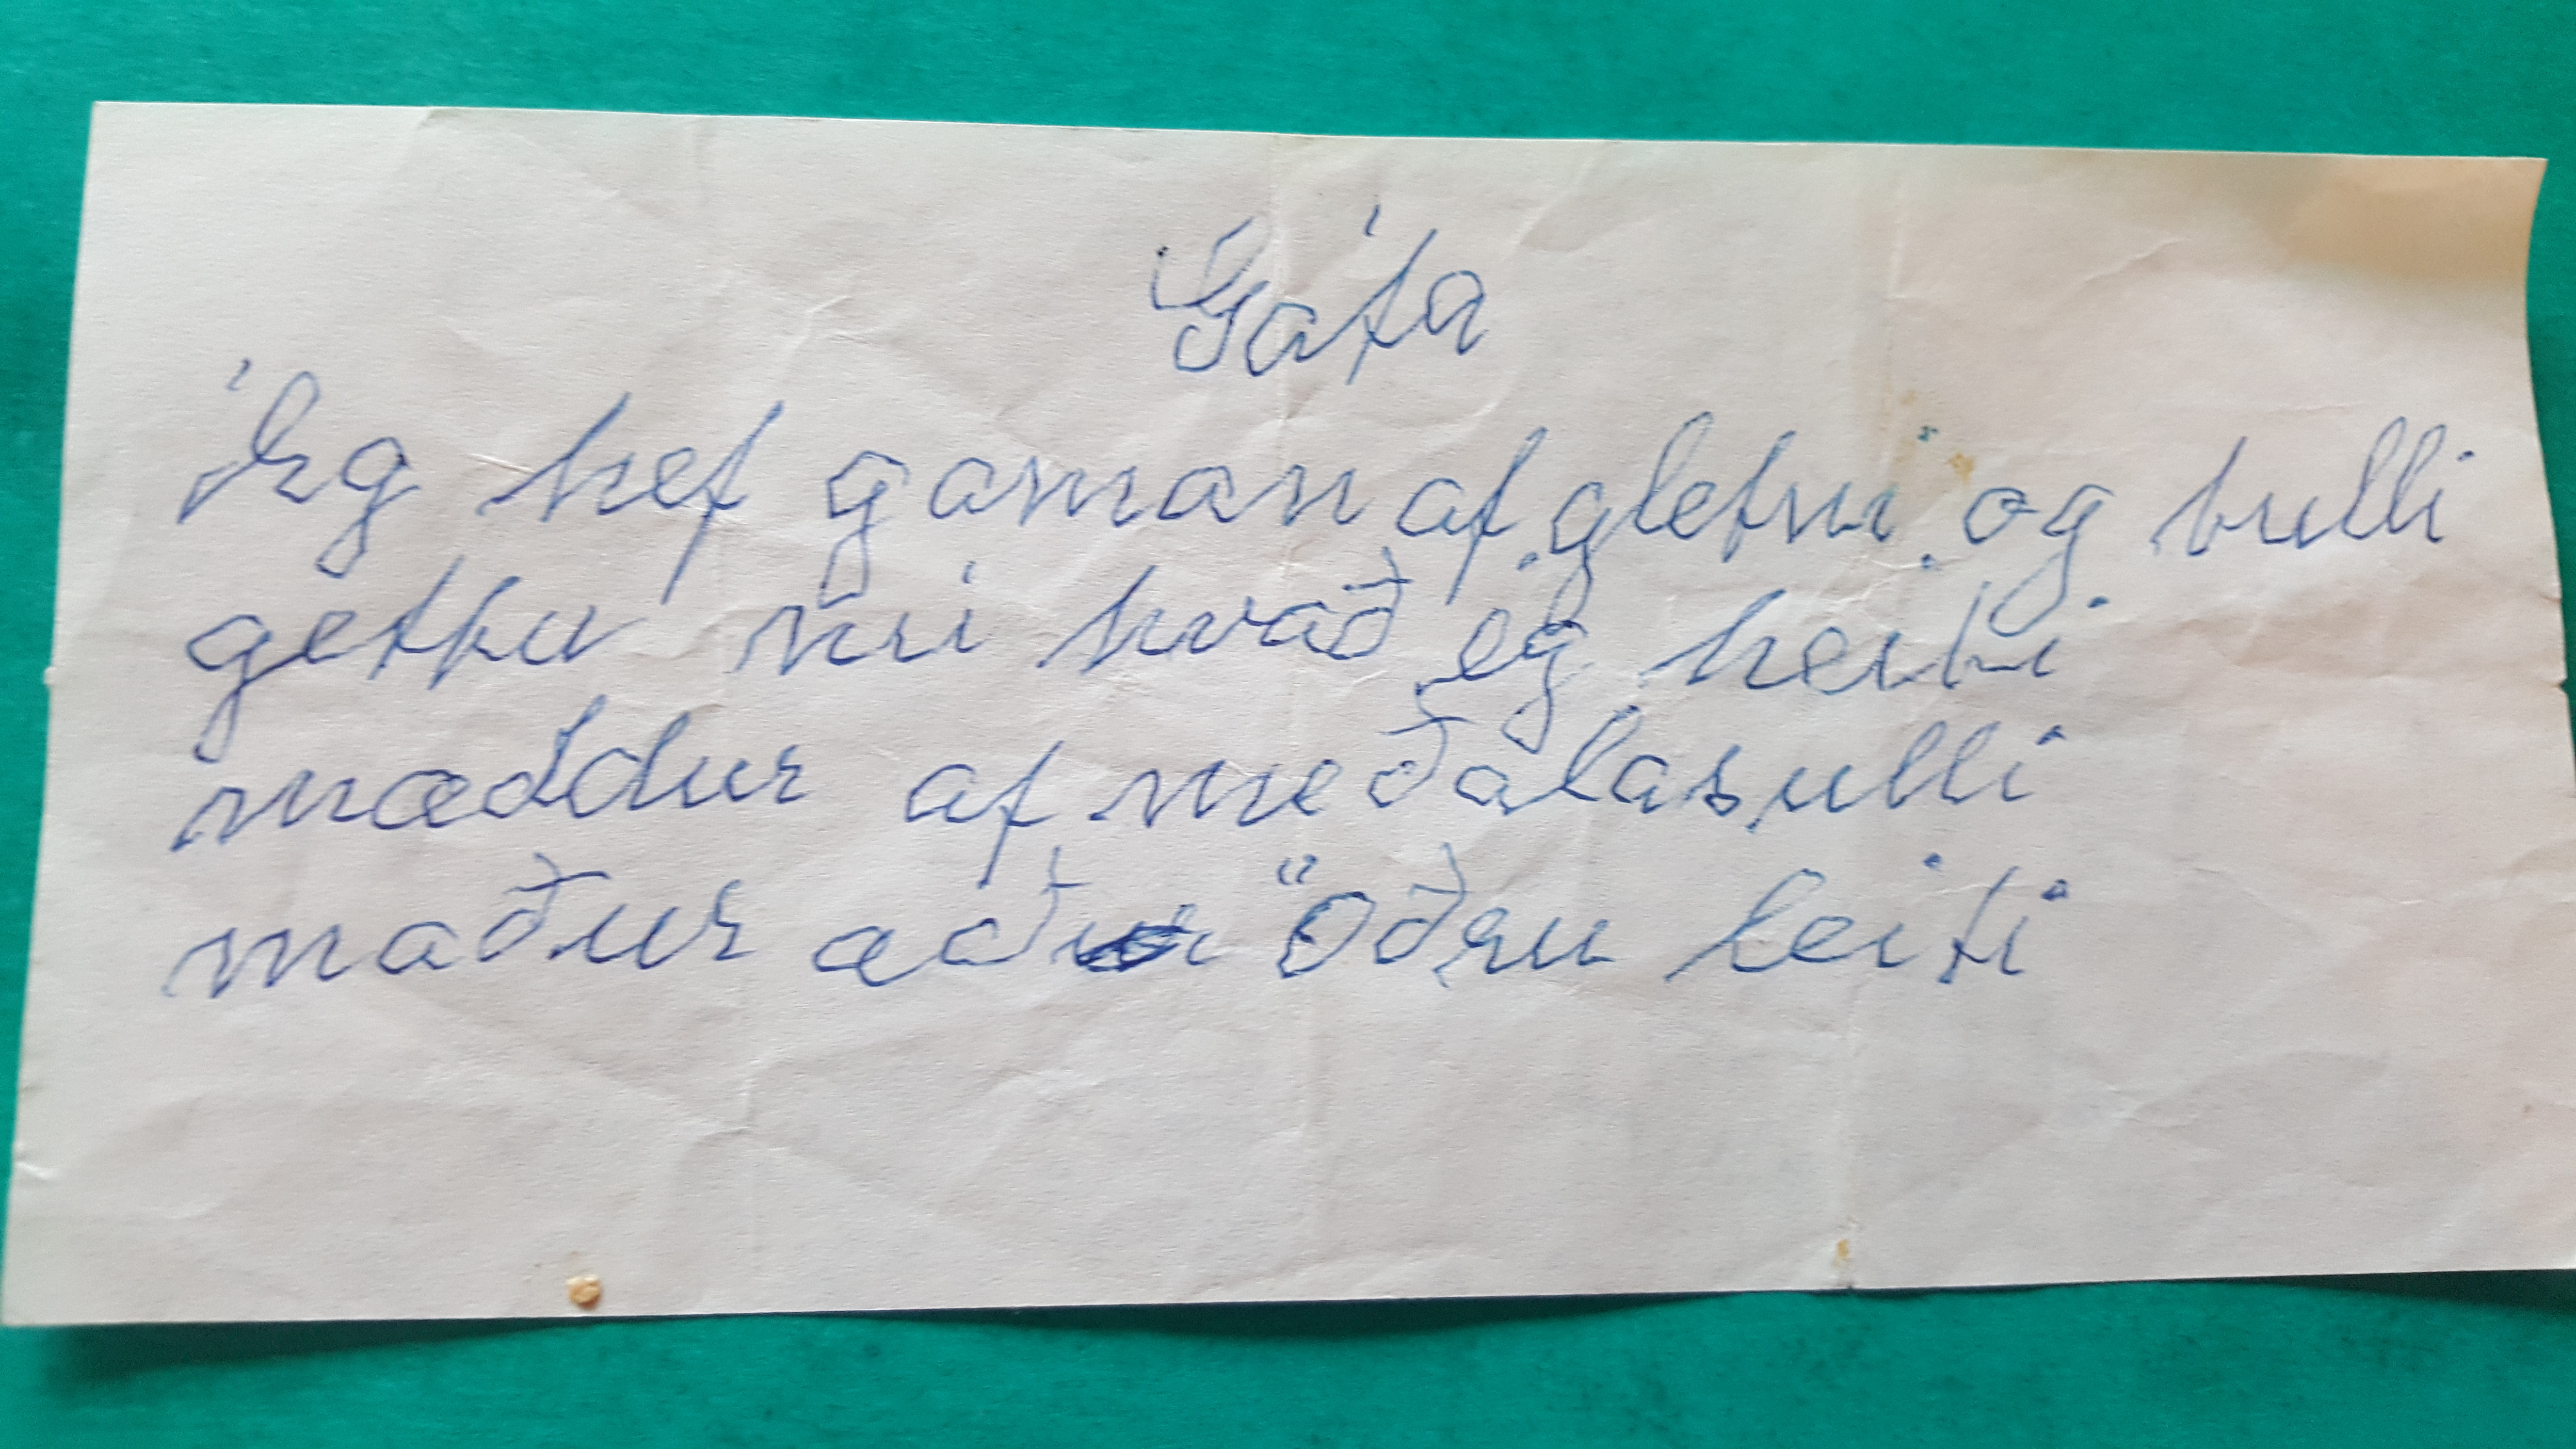 Gáta
Ég hef gaman af gletni og bulli
gettu nú hvað eg heiti
mæddur af meðalasulli
maður að öðru leiti